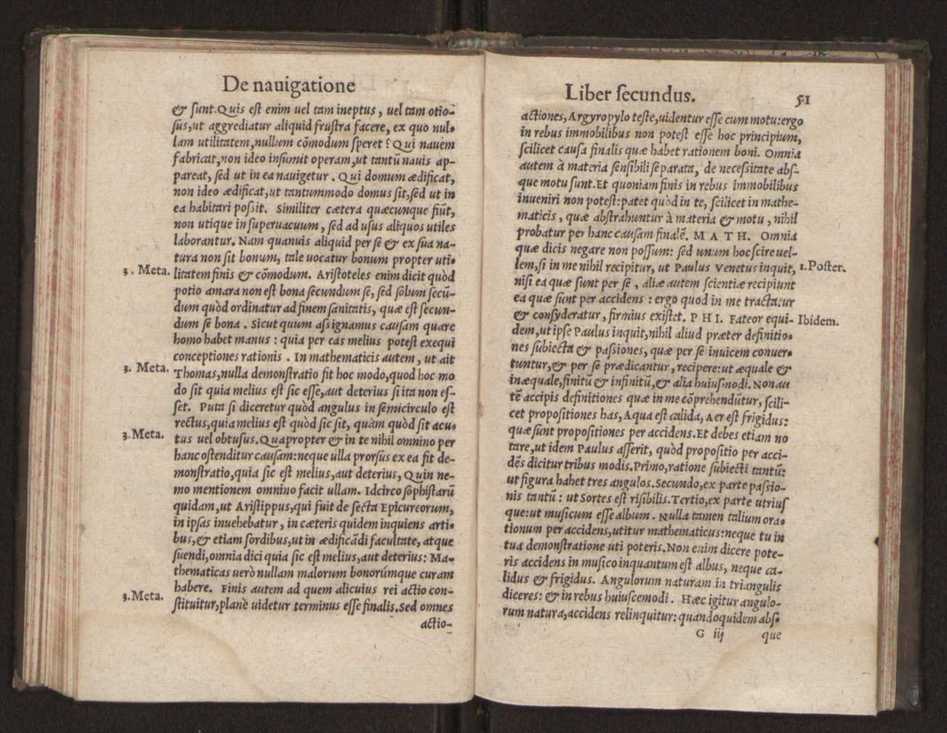 De nauigatione
& sunt. Quis est enim uel tam ineptus, uel tam otio-
sus, ut aggrediatur aliquid frustra facere, ex quo nul-
lam utilitatem, nullum cōmodum speret? Qui nauem
fabricat, non ideo insumit operam, ut tantū nauis ap-
pareat, sed ut in ea nauigetur. Qui domum ædificat,
non ideo ædificat, ut tantummodo domus sit, sed ut in
ea habitari possit. Similiter cætera quæcunque fiūt,
non utique in superuacuum, sed ad usus aliquos utiles
laborantur. Nam quanuis aliquid per se & ex sua na-
tura non sit bonum, tale uocatur bonum propter uti-
3. Meta. litatem finis & cōmodum. Aristoteles enim dicit quòd
potio amara non est bona secundum se, sed solum secū-
dum quòd ordinatur ad finem sanitatis, quæ est secun-
dum se bona. Sicut quum assignamus causam quare
homo habet manus: quia per eas melius potest exequi
conceptiones rationis. In mathematicis autem, ut ait
3. Meta. Thomas, nulla demonstratio fit hoc modo, quod hoc mo
do sit quia melius est sic esse, aut deterius si ita non es-
set. Puta si diceretur quòd angulus in semicirculo est
rectus, quia melius est quòd sic sit, quàm quòd sit acu-
3. Meta. tus uel obtusus. Quapropter & in te nihil omnino per
hanc ostenditur causam: neque ulla prorsus ex ea fit de-
monstratio, quia sic est melius, aut deterius, Quin ne-
mo mentionem omnino facit ullam. Idcirco sophistarū
quidam, ut Aristippus, qui fuit de secta Epicureorum,
in ipsas inuehebatur, in cæteris quidem inquiens arti-
bus, & etiam sordibus, ut in ædificādi facultate, atque
suendi, omnia dici quia sic est melius, aut deterius: Ma-
thematicas uerò nullam malorum bonorúmque curam
habere. Finis autem ad quem alicuius rei actio con-
3. Meta. stituitur, planè uidetur terminus esse finalis. Sed omnes
actio-
Liber secundus. 51
actiones, Argyropylo teste, uidentur esse cum motu: ergo
in rebus immobilibus non potest esse hoc principium,
scilicet causa finalis quæ habet rationem boni. Omnia
autem à materia sensibili separata, de necessitate abs-
que motu sunt. Et quoniam finis in rebus immobilibus
inueniri non potest: patet quòd in te, scilicet in mathe-
maticis, quæ abstrahuntur à materia & motu, nihil
probatur per hanc causam finalē. MATH. Omnia
quæ dicis negare non possum: sed unum hoc scire uel-
lem, si in me nihil recipitur, ut Paulus Venetus inquit, 1. Poster.
nisi ea quæ sunt per se, aliæ autem scientiæ recipiunt
ea quæ sunt per accidens: ergo quod in me tractatur
& consyderatur, firmius existet. PHI. Fateor equi- Ibidem.
dem, ut ipse Paulus inquit, nihil aliud præter definitio-
nes subiecta & passiones, quæ per se inuicem conuer-
tuntur, & per se prædicantur, recipere: ut æquale &
inæquale, finitū & infinitū, & alia huiusmodi. Non au
tē accipis definitiones quæ in me cōprehendūtur, scili-
cet propositiones has, Aqua est calida, Aer est frigidus:
quæ sunt propositiones per accidens. Et debes etiam no
tare, ut idem Paulus asserit, quòd propositio per acci-
dēs dicitur tribus modis. Primo, ratione subiecti tantū:
ut figura habet tres angulos. Secundo, ex parte passio-
nis tantū: ut Sortes est risibilis. Tertio, ex parte utrius
que: ut musicum esse album. Nulla tamen talium ora-
tionum per accidens, utitur mathematicus: neque tu in
tua demonstratione uti poteris. Non enim dicere pote-
ris accidens in musico inquantum est albus, neque ca-
lidus & frigidus. Angulorum naturam in triangulis
diceres: & in rebus huiuscemodi. Hæc igitur angulo-
rum natura, accidens relinquitur: quandoquidem abs-
G iij que